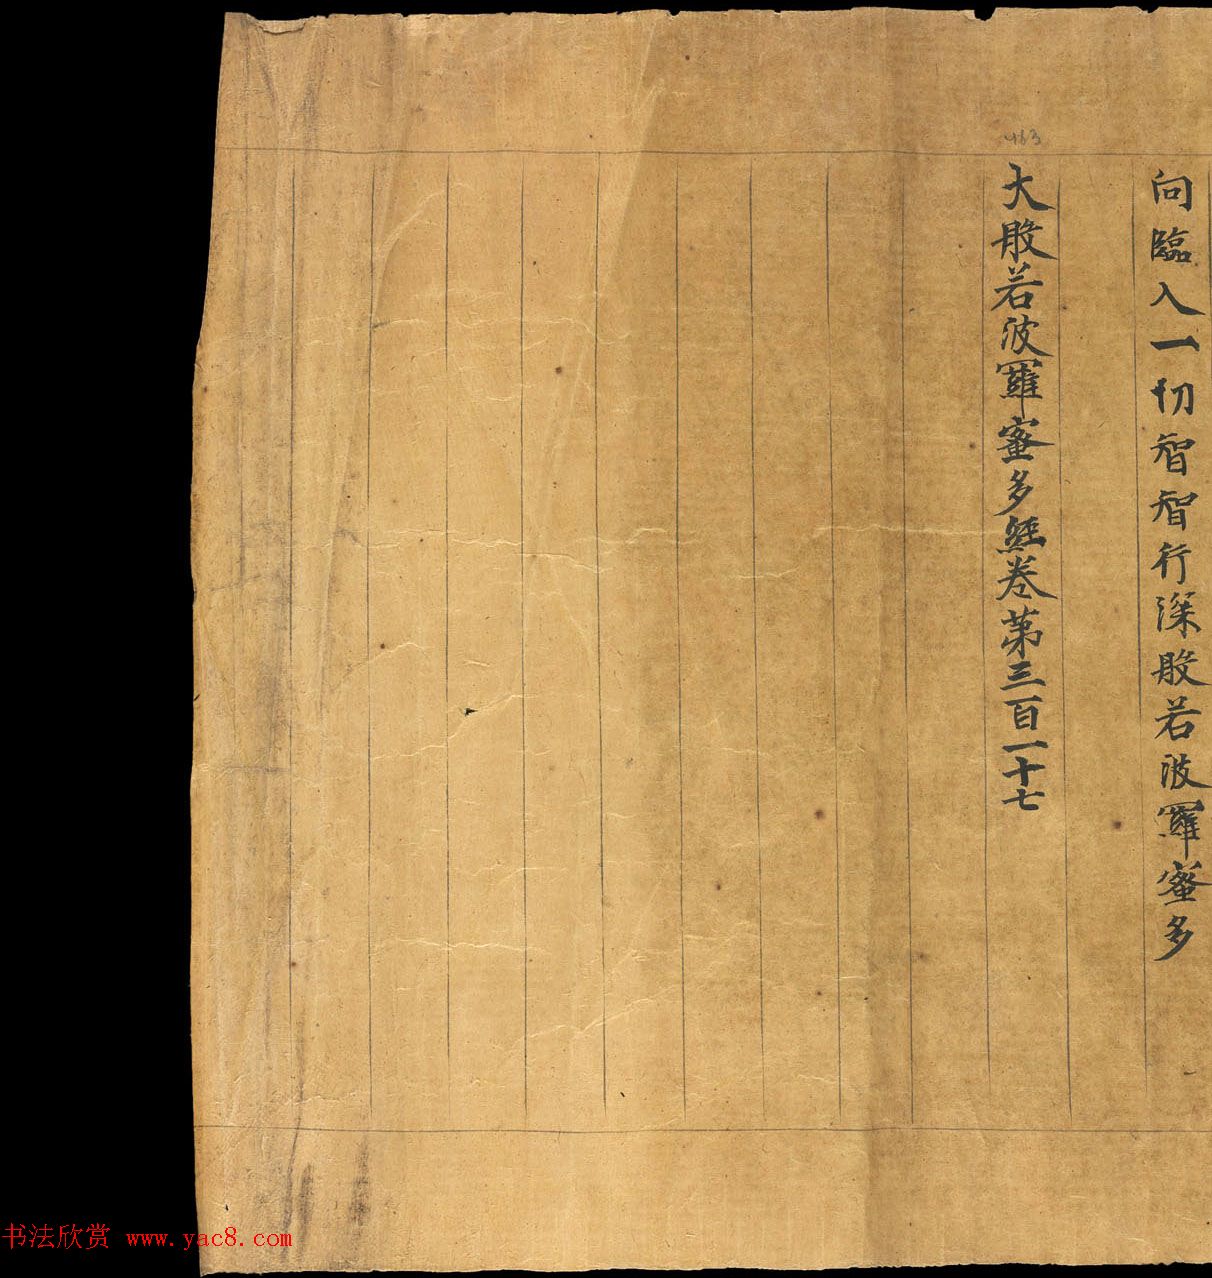 向臨入一切智智行深般若波羅蜜多
大般若波羅蜜多經卷第三百一十七
463
书法欣赏 www.yac8.com